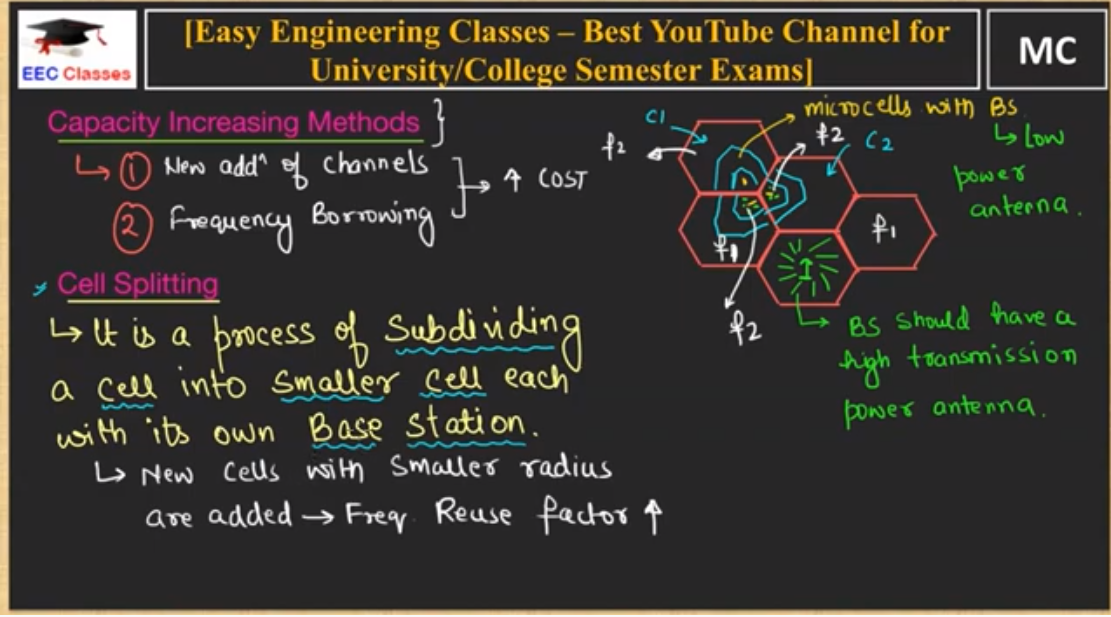 EEC Classes
[Easy Engineering Classes – Best YouTube Channel for
University/College Semester Exams]
MC
Capacity Increasing Methods
① New addⁿ of channels
② Frequency Borrowing
→ ↑ COST
Cell Splitting
↳ It is a process of Subdividing
a cell into smaller cell each
with its own Base station.
↳ New cells with smaller radius
are added → Freq. Reuse factor ↑
microcells with BS.
↳ Low
power
antenna.
C1
f2
f2
C2
f1
f1
f2
↳ BS should have a
high transmission
power antenna.